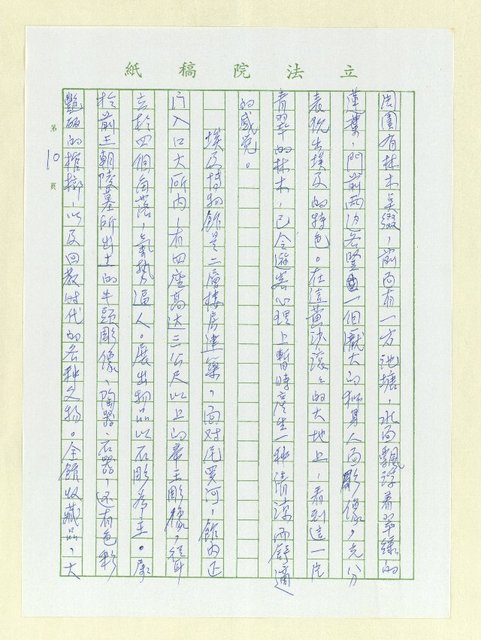 立法院稿紙
第10頁
周圍有林木点綴，前面有一方池塘，水面飄浮着翠綠的
蓮葉，門前兩边各豎立一個龐大的獅身人面彫像，充分
表現出埃及的特色。在這黃沙滾々的大地上，看到這一片
青翠的林木，已令遊客心理上暫時產生一种清涼而舒適
的感覺。
埃及博物館是二層樓房建築，面对尼罗河，館內正
门入口大所內，有四座高达三公尺以上的帝王彫像，聳
立於四個角落，氣勢逼人。展出物品以石彫為主。
於前王朝陵墓所出土的牛頭彫像、陶器、石器，还有色彩
艷丽的棺槨，以及回教时代的各种文物。全館收藏品，大